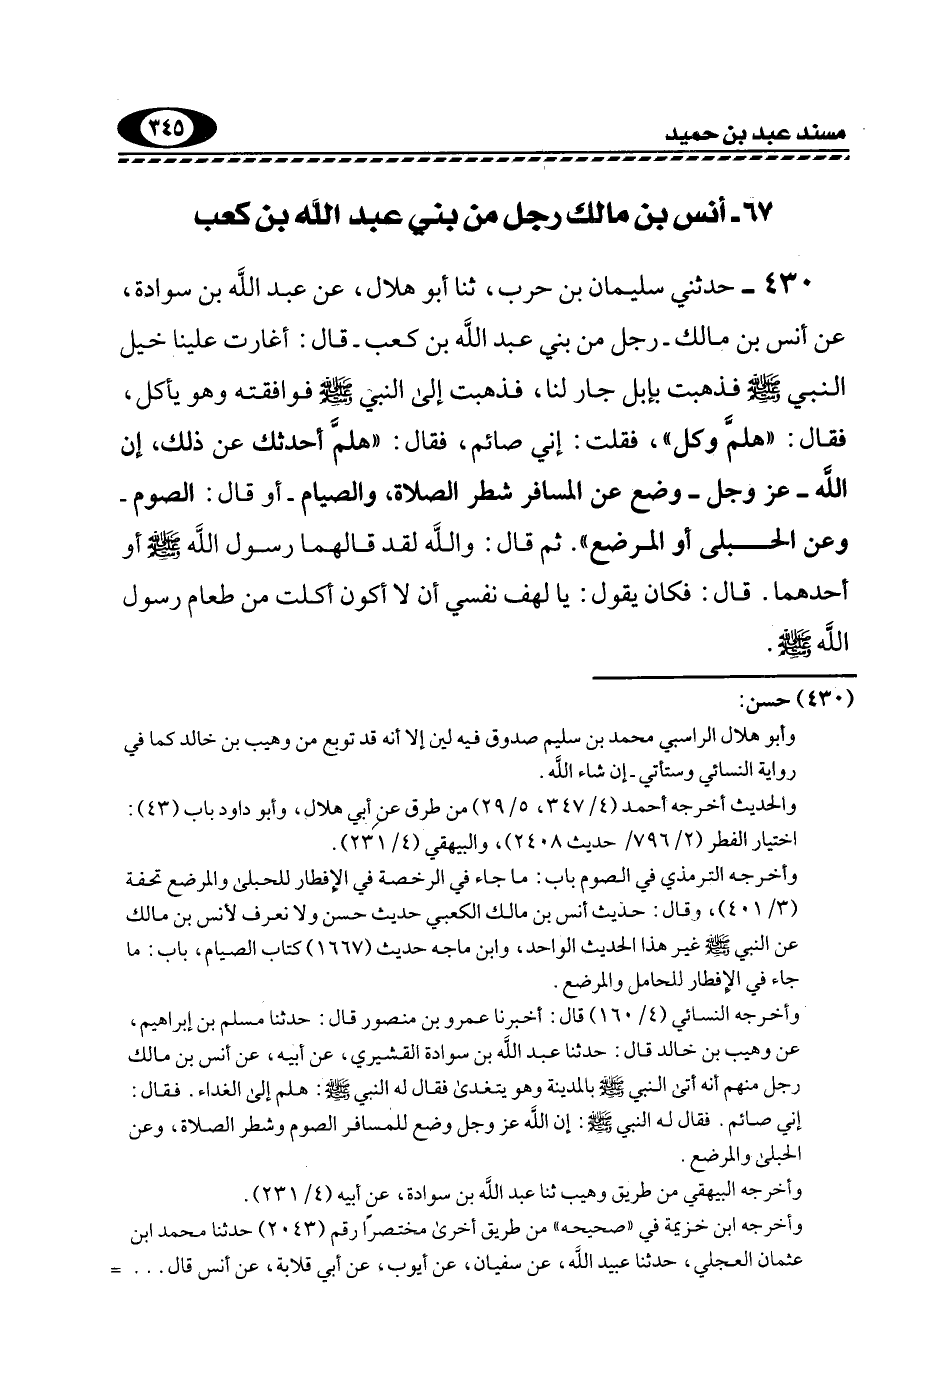 مسند عبد بن حميد
٣٤٥
٦٧ـ أنس بن مالك رجل من بني عبد الله بن كعب
٤٣٠ ـ حدثني سليمان بن حرب، ثنا أبو هلال، عن عبد الله بن سوادة،
عن أنس بن مالك ـ رجل من بني عبد الله بن كعب ـ قال: أغارت علينا خيل
النبي ﷺ فذهبت بإبل جار لنا، فذهبت إلى النبي ﷺ فوافقته وهو يأكل،
فقال: «هلمَّ وكل»، فقلت: إني صائم، فقال: «هلمَّ أحدثك عن ذلك، إن
الله ـ عز وجل ـ وضع عن المسافر شطر الصلاة، والصيام ـ أو قال: الصوم ـ
وعن الحبلى أو المرضع». ثم قال: والله لقد قالهما رسول الله ﷺ أو
أحدهما. قال: فكان يقول: يا لهف نفسي أن لا أكون أكلت من طعام رسول
الله ﷺ.
(٤٣٠) حسن:
وأبو هلال الراسبي محمد بن سليم صدوق فيه لين إلا أنه قد توبع من وهيب بن خالد كما في
رواية النسائي وستأتي ـ إن شاء الله.
والحديث أخرجه أحمد (٤/ ٣٤٧، ٥/ ٢٩) من طرق عن أبي هلال، وأبو داود باب (٤٣):
اختيار الفطر (٢/ ٧٩٦/ حديث ٢٤٠٨)، والبيهقي (٤/ ٢٣١).
وأخرجه الترمذي في الصوم باب: ما جاء في الرخصة في الإفطار للحبلى والمرضع تحفة
(٣/ ٤٠١)، وقال: حديث أنس بن مالك الكعبي حديث حسن ولا نعرف لأنس بن مالك
عن النبي ﷺ غير هذا الحديث الواحد، وابن ماجه حديث (١٦٦٧) كتاب الصيام، باب: ما
جاء في الإفطار للحامل والمرضع.
وأخرجه النسائي (٤/ ١٦٠) قال: أخبرنا عمرو بن منصور قال: حدثنا مسلم بن إبراهيم،
عن وهيب بن خالد قال: حدثنا عبد الله بن سوادة القشيري، عن أبيه، عن أنس بن مالك
رجل منهم أنه أتى النبي ﷺ بالمدينة وهو يتغدى فقال له النبي ﷺ: هلم إلى الغداء. فقال:
إني صائم. فقال له النبي ﷺ: إن الله عز وجل وضع للمسافر الصوم وشطر الصلاة، وعن
الحبلى والمرضع.
وأخرجه البيهقي من طريق وهيب ثنا عبد الله بن سوادة، عن أبيه (٤/ ٢٣١).
وأخرجه ابن خزيمة في «صحيحه» من طريق أخرى مختصرًا رقم (٢٠٤٣) حدثنا محمد ابن
عثمان العجلي، حدثنا عبيد الله، عن سفيان، عن أيوب، عن أبي قلابة، عن أنس قال... =